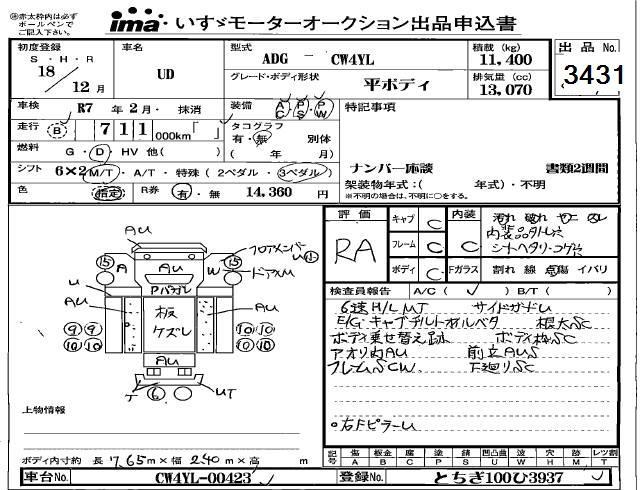 ※赤太枠内は必ず
ボールペンで
ご記入下さい。
ima いすゞモーターオークション出品申込書
初度登録 S・H・R 18年 12月
車名 UD
型式 ADG － CW4YL
積載(kg) 11,400
出品No. 3431
グレード・ボディ形状 平ボディ
排気量(cc) 13,070
車検 R7 年 2月・抹消
装備 AC PS PW
特記事項
走行 (B) 711 000km「 」
タコグラフ 有・無 別体 ( 年 月)
燃料 G・D・HV 他( )
ナンバー応談 書類2週間
シフト 6×2 M/T・A/T・特殊(2ペダル・3ペダル)
架装物年式:( 年式)・不明
※不明の場合は、不明に○をする。
色 (指定) R券 有・無 14,360 円
評価 RA
キャブ C 内装 C 汚れ 破れ
内装品タトレ
フレーム C シートヘタリ・コゲ穴
ボディ C Fガラス S 割れ 線 点傷 イバリ
検査員報告 A/C( ✓ ) B/T( )
6速H/L MT サイドガードU
E/Gキャブチルトオルベタ 根太SC
ボディ乗せ替え跡 ボディ枠SC
アオリ内AU 前立AUS
フレームSCW 下廻りSC
○右FピラーU
AU
フロアメンバー U
ドアノブU
15 A AU W 15
PバガレU
U
AU 板ケズレ AU
9 9 10 10
10 10 10 10
AU
T 6 UT
上物情報
ボディ内寸約 長 7.65 m × 幅 2.40 m × 高 m
記号 傷A 板金B 腐C 塗P 錆S 凹凸曲U 波W 穴H 跡M レツ割T
車台No. CW4YL-00423
登録No. とちぎ100ひ3937